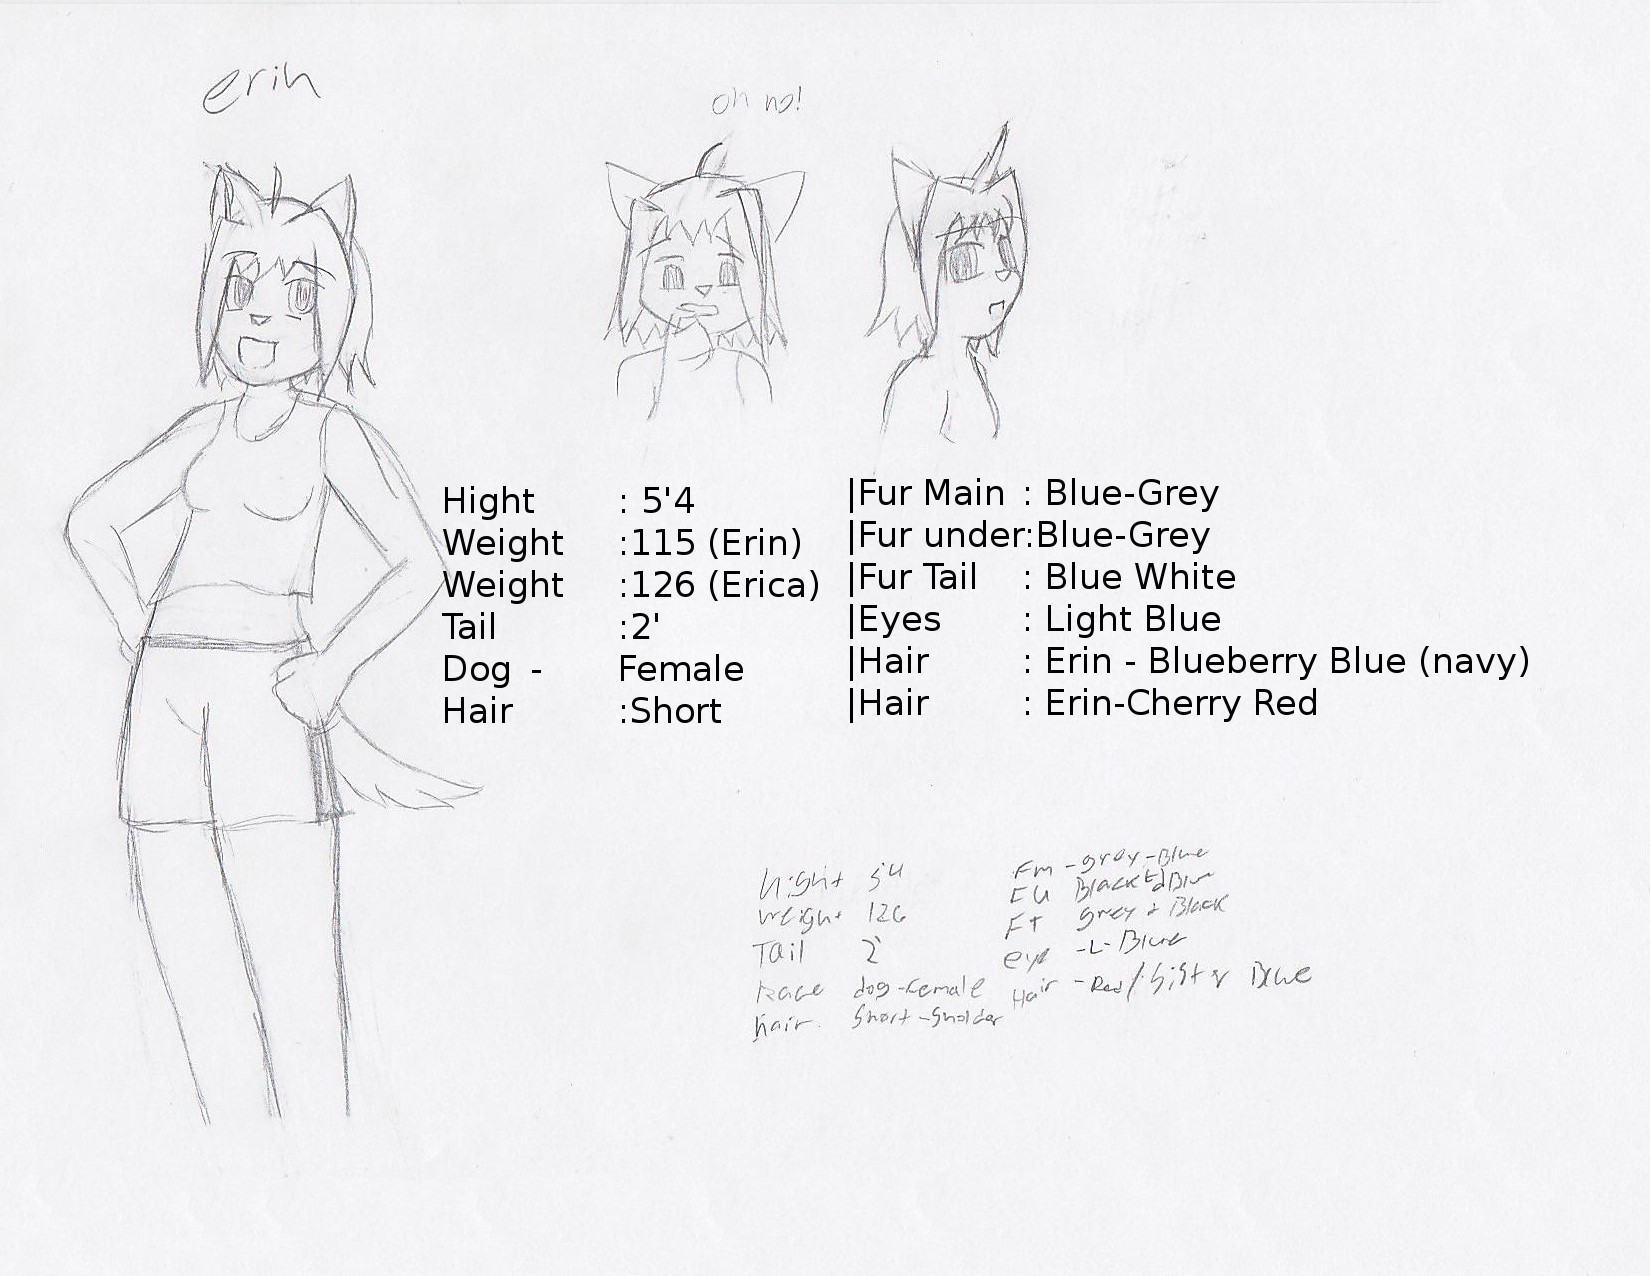 erin
oh no!
Hight : 5'4 |Fur Main : Blue-Grey
Weight :115 (Erin) |Fur under:Blue-Grey
Weight :126 (Erica) |Fur Tail : Blue White
Tail :2' |Eyes : Light Blue
Dog - Female |Hair : Erin - Blueberry Blue (navy)
Hair :Short |Hair : Erin-Cherry Red
hight 5'4 Fm -grey-Blue
weight 126 FU Black Blue
Tail 2' FT grey & Black
Race dog-Female eye -L-Blue
hair. Short-Sholder Hair -Red/Sister Blue